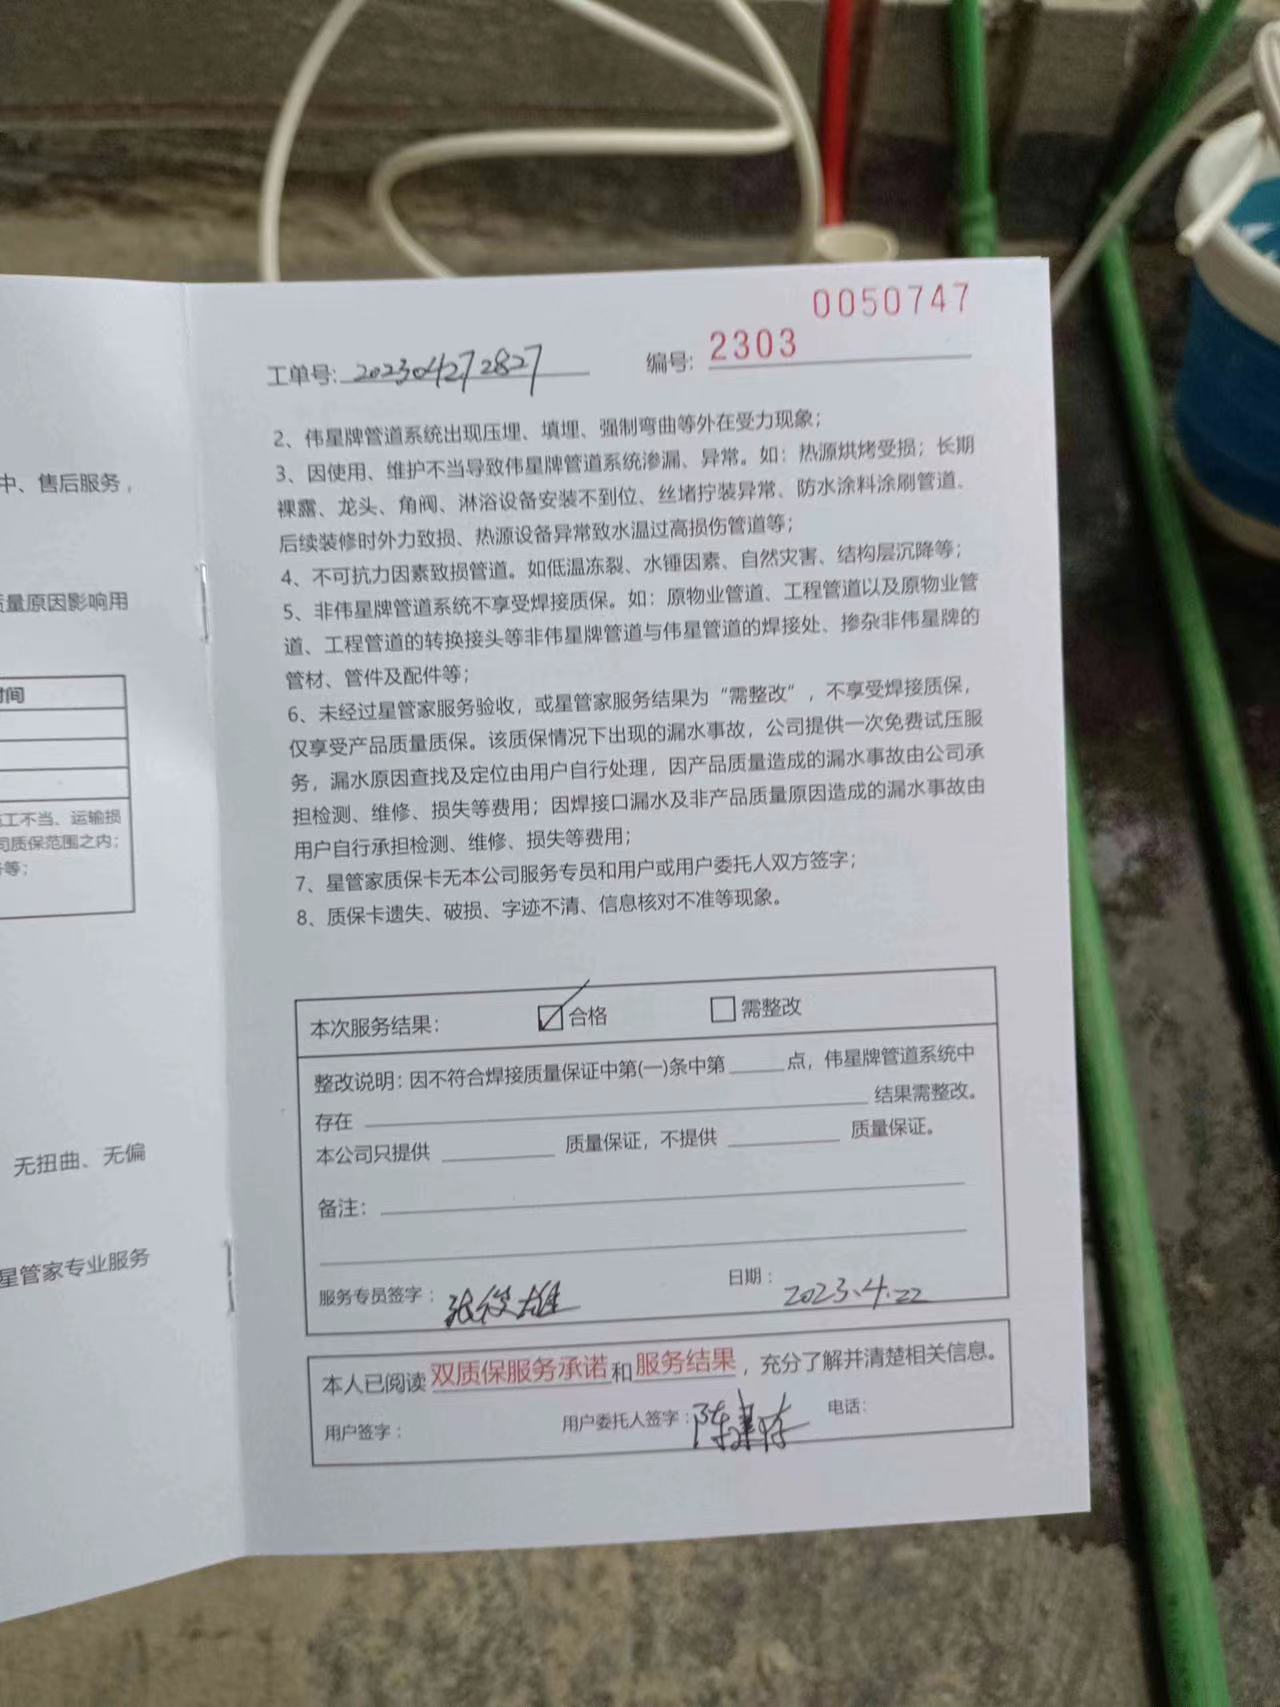 中、售后服务，
质量原因影响用
时间
施工不当、运输损
司质保范围之内；
等；
无扭曲、无偏
星管家专业服务
0050747
工单号: 202304272827 编号: 2303
2、伟星牌管道系统出现压埋、填埋、强制弯曲等外在受力现象；
3、因使用、维护不当导致伟星牌管道系统渗漏、异常。如：热源烘烤受损；长期
裸露、龙头、角阀、淋浴设备安装不到位、丝堵拧装异常、防水涂料涂刷管道、
后续装修时外力致损、热源设备异常致水温过高损伤管道等；
4、不可抗力因素致损管道。如低温冻裂、水锤因素、自然灾害、结构层沉降等；
5、非伟星牌管道系统不享受焊接质保。如：原物业管道、工程管道以及原物业管
道、工程管道的转换接头等非伟星牌管道与伟星管道的焊接处、掺杂非伟星牌的
管材、管件及配件等；
6、未经过星管家服务验收，或星管家服务结果为“需整改”，不享受焊接质保，
仅享受产品质量质保。该质保情况下出现的漏水事故，公司提供一次免费试压服
务，漏水原因查找及定位由用户自行处理，因产品质量造成的漏水事故由公司承
担检测、维修、损失等费用；因焊接口漏水及非产品质量原因造成的漏水事故由
用户自行承担检测、维修、损失等费用；
7、星管家质保卡无本公司服务专员和用户或用户委托人双方签字；
8、质保卡遗失、破损、字迹不清、信息核对不准等现象。
本次服务结果： ☑合格 □需整改
整改说明：因不符合焊接质量保证中第(一)条中第____点，伟星牌管道系统中
存在____结果需整改。
本公司只提供____质量保证，不提供____质量保证。
备注：
服务专员签字： 张俊雄 日期： 2023.4.22
本人已阅读双质保服务承诺和服务结果，充分了解并清楚相关信息。
用户签字： 用户委托人签字： 电话：